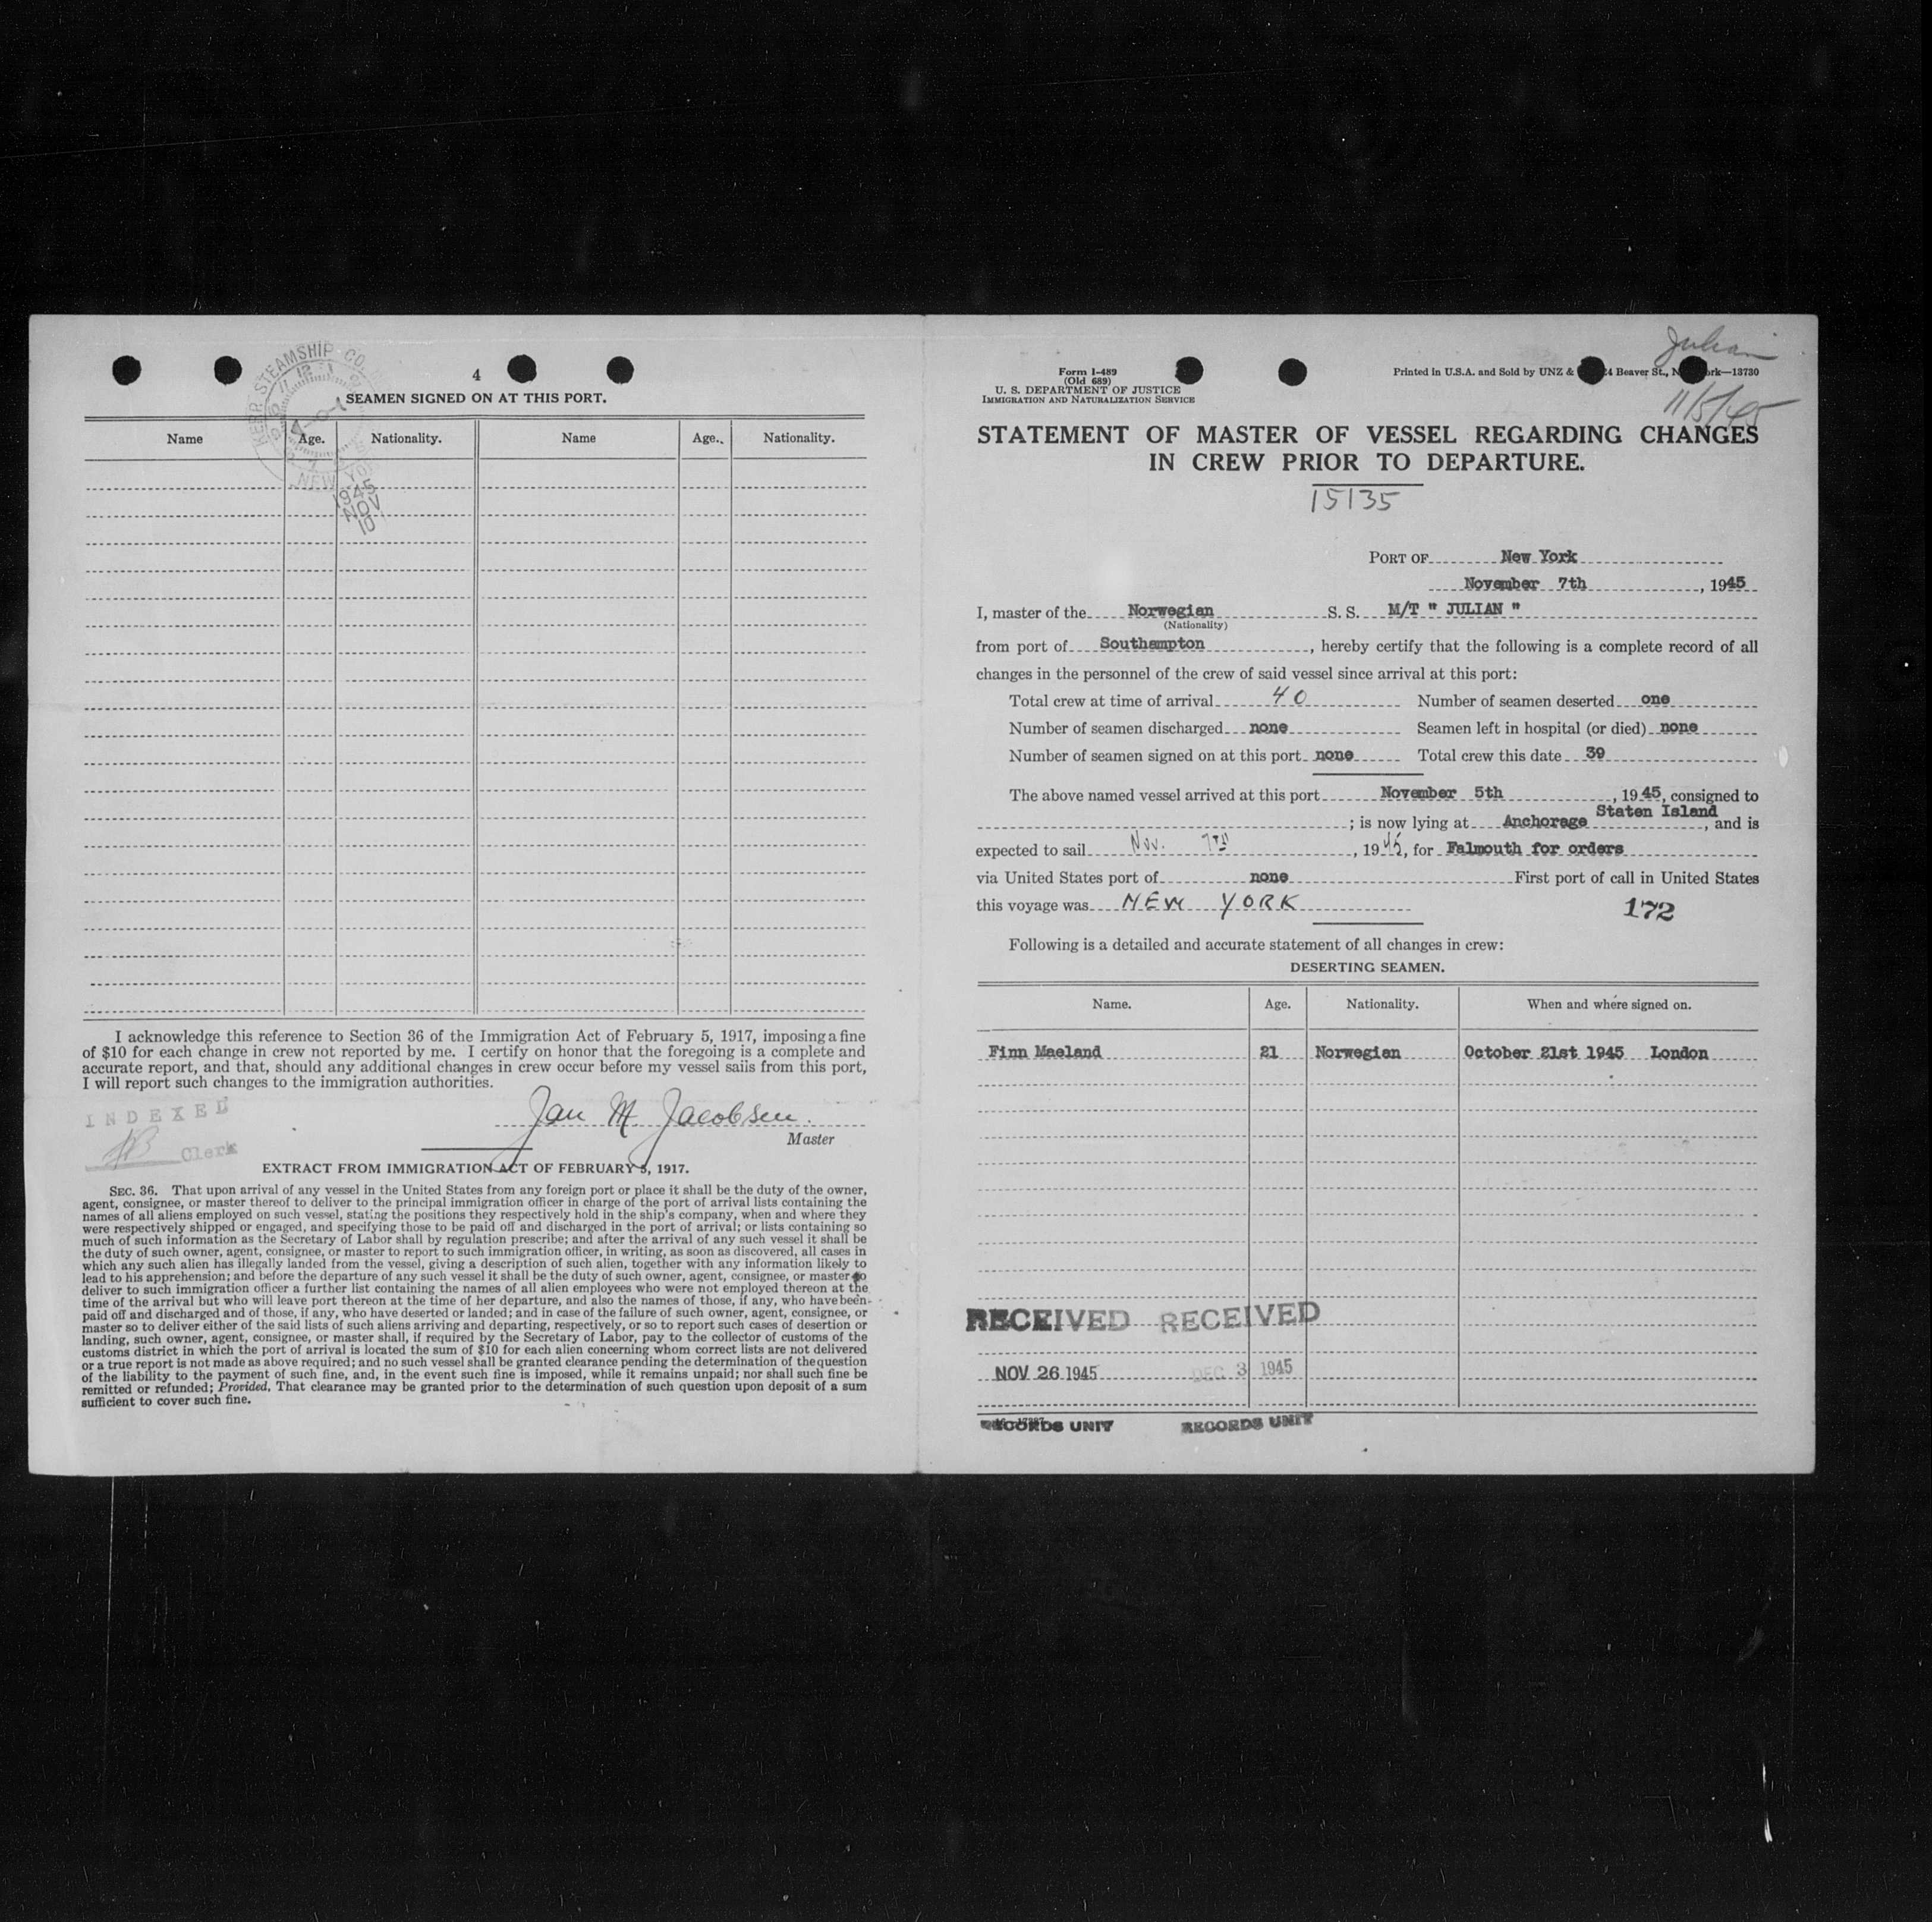 KERR STEAMSHIP CO.
NEW YORK
1945
NOV
10
4
SEAMEN SIGNED ON AT THIS PORT.
Name Age. Nationality. Name Age. Nationality.
I acknowledge this reference to Section 36 of the Immigration Act of February 5, 1917, imposing a fine
of $10 for each change in crew not reported by me. I certify on honor that the foregoing is a complete and
accurate report, and that, should any additional changes in crew occur before my vessel sails from this port,
I will report such changes to the immigration authorities.
INDEXED
Clerk
Jan M Jacobsen.
Master
EXTRACT FROM IMMIGRATION ACT OF FEBRUARY 5, 1917.
SEC. 36. That upon arrival of any vessel in the United States from any foreign port or place it shall be the duty of the owner,
agent, consignee, or master thereof to deliver to the principal immigration officer in charge of the port of arrival lists containing the
names of all aliens employed on such vessel, stating the positions they respectively hold in the ship's company, when and where they
were respectively shipped or engaged, and specifying those to be paid off and discharged in the port of arrival; or lists containing so
much of such information as the Secretary of Labor shall by regulation prescribe; and after the arrival of any such vessel it shall be
the duty of such owner, agent, consignee, or master to report to such immigration officer, in writing, as soon as discovered, all cases in
which any such alien has illegally landed from the vessel, giving a description of such alien, together with any information likely to
lead to his apprehension; and before the departure of any such vessel it shall be the duty of such owner, agent, consignee, or master to
deliver to such immigration officer a further list containing the names of all alien employees who were not employed thereon at the
time of the arrival but who will leave port thereon at the time of her departure, and also the names of those, if any, who have been
paid off and discharged and of those, if any, who have deserted or landed; and in case of the failure of such owner, agent, consignee, or
master so to deliver either of the said lists of such aliens arriving and departing, respectively, or so to report such cases of desertion or
landing, such owner, agent, consignee, or master shall, if required by the Secretary of Labor, pay to the collector of customs of the
customs district in which the port of arrival is located the sum of $10 for each alien concerning whom correct lists are not delivered
or a true report is not made as above required; and no such vessel shall be granted clearance pending the determination of the question
of the liability to the payment of such fine, and, in the event such fine is imposed, while it remains unpaid; nor shall such fine be
remitted or refunded; Provided, That clearance may be granted prior to the determination of such question upon deposit of a sum
sufficient to cover such fine.
Julian
11/5/45
Form I-489
(Old 689)
U. S. DEPARTMENT OF JUSTICE
IMMIGRATION AND NATURALIZATION SERVICE
Printed in U.S.A. and Sold by UNZ & 24 Beaver St., New York—13730
STATEMENT OF MASTER OF VESSEL REGARDING CHANGES
IN CREW PRIOR TO DEPARTURE.
15135
PORT OF New York
November 7th, 1945
I, master of the Norwegian S. S. M/T " JULIAN "
(Nationality)
from port of Southampton, hereby certify that the following is a complete record of all
changes in the personnel of the crew of said vessel since arrival at this port:
Total crew at time of arrival 40 Number of seamen deserted one
Number of seamen discharged none Seamen left in hospital (or died) none
Number of seamen signed on at this port none Total crew this date 39
The above named vessel arrived at this port November 5th, 1945, consigned to
; is now lying at Anchorage Staten Island, and is
expected to sail Nov. 7TH, 1945, for Falmouth for orders
via United States port of none First port of call in United States
this voyage was NEW YORK
172
Following is a detailed and accurate statement of all changes in crew:
DESERTING SEAMEN.
Name. Age. Nationality. When and where signed on.
Finn Maeland 21 Norwegian October 21st 1945 London
RECEIVED RECEIVED
NOV 26 1945 DEC 3 1945
RECORDS UNIT RECORDS UNIT